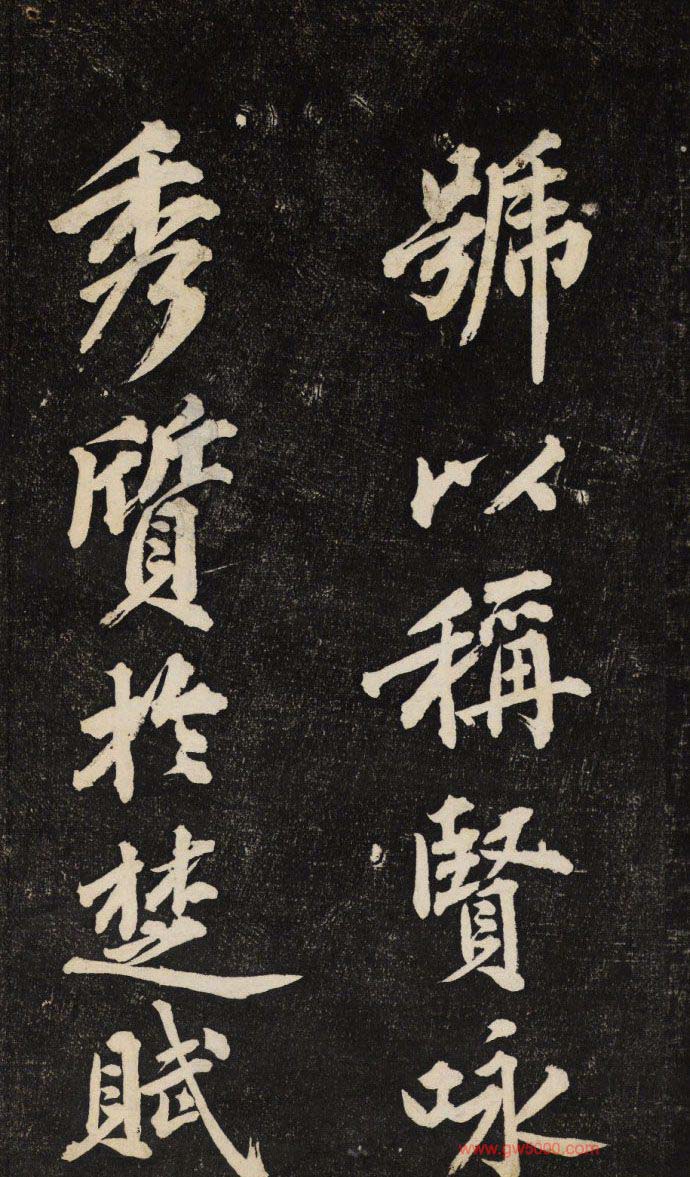 號以稱賢咏
秀質於楚賦
www.gw5000.com